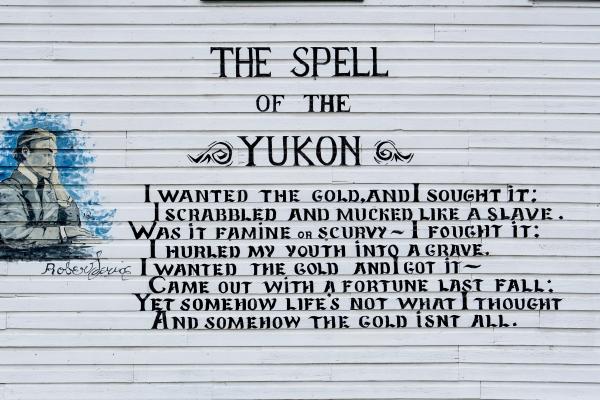 THE SPELL
OF THE
YUKON
I WANTED THE GOLD, AND I SOUGHT IT;
I SCRABBLED AND MUCKED LIKE A SLAVE.
WAS IT FAMINE OR SCURVY~ I FOUGHT IT;
I HURLED MY YOUTH INTO A GRAVE.
I WANTED THE GOLD AND I GOT IT~
CAME OUT WITH A FORTUNE LAST FALL;
YET SOMEHOW LIFE'S NOT WHAT I THOUGHT
AND SOMEHOW THE GOLD ISNT ALL.
Robert Service